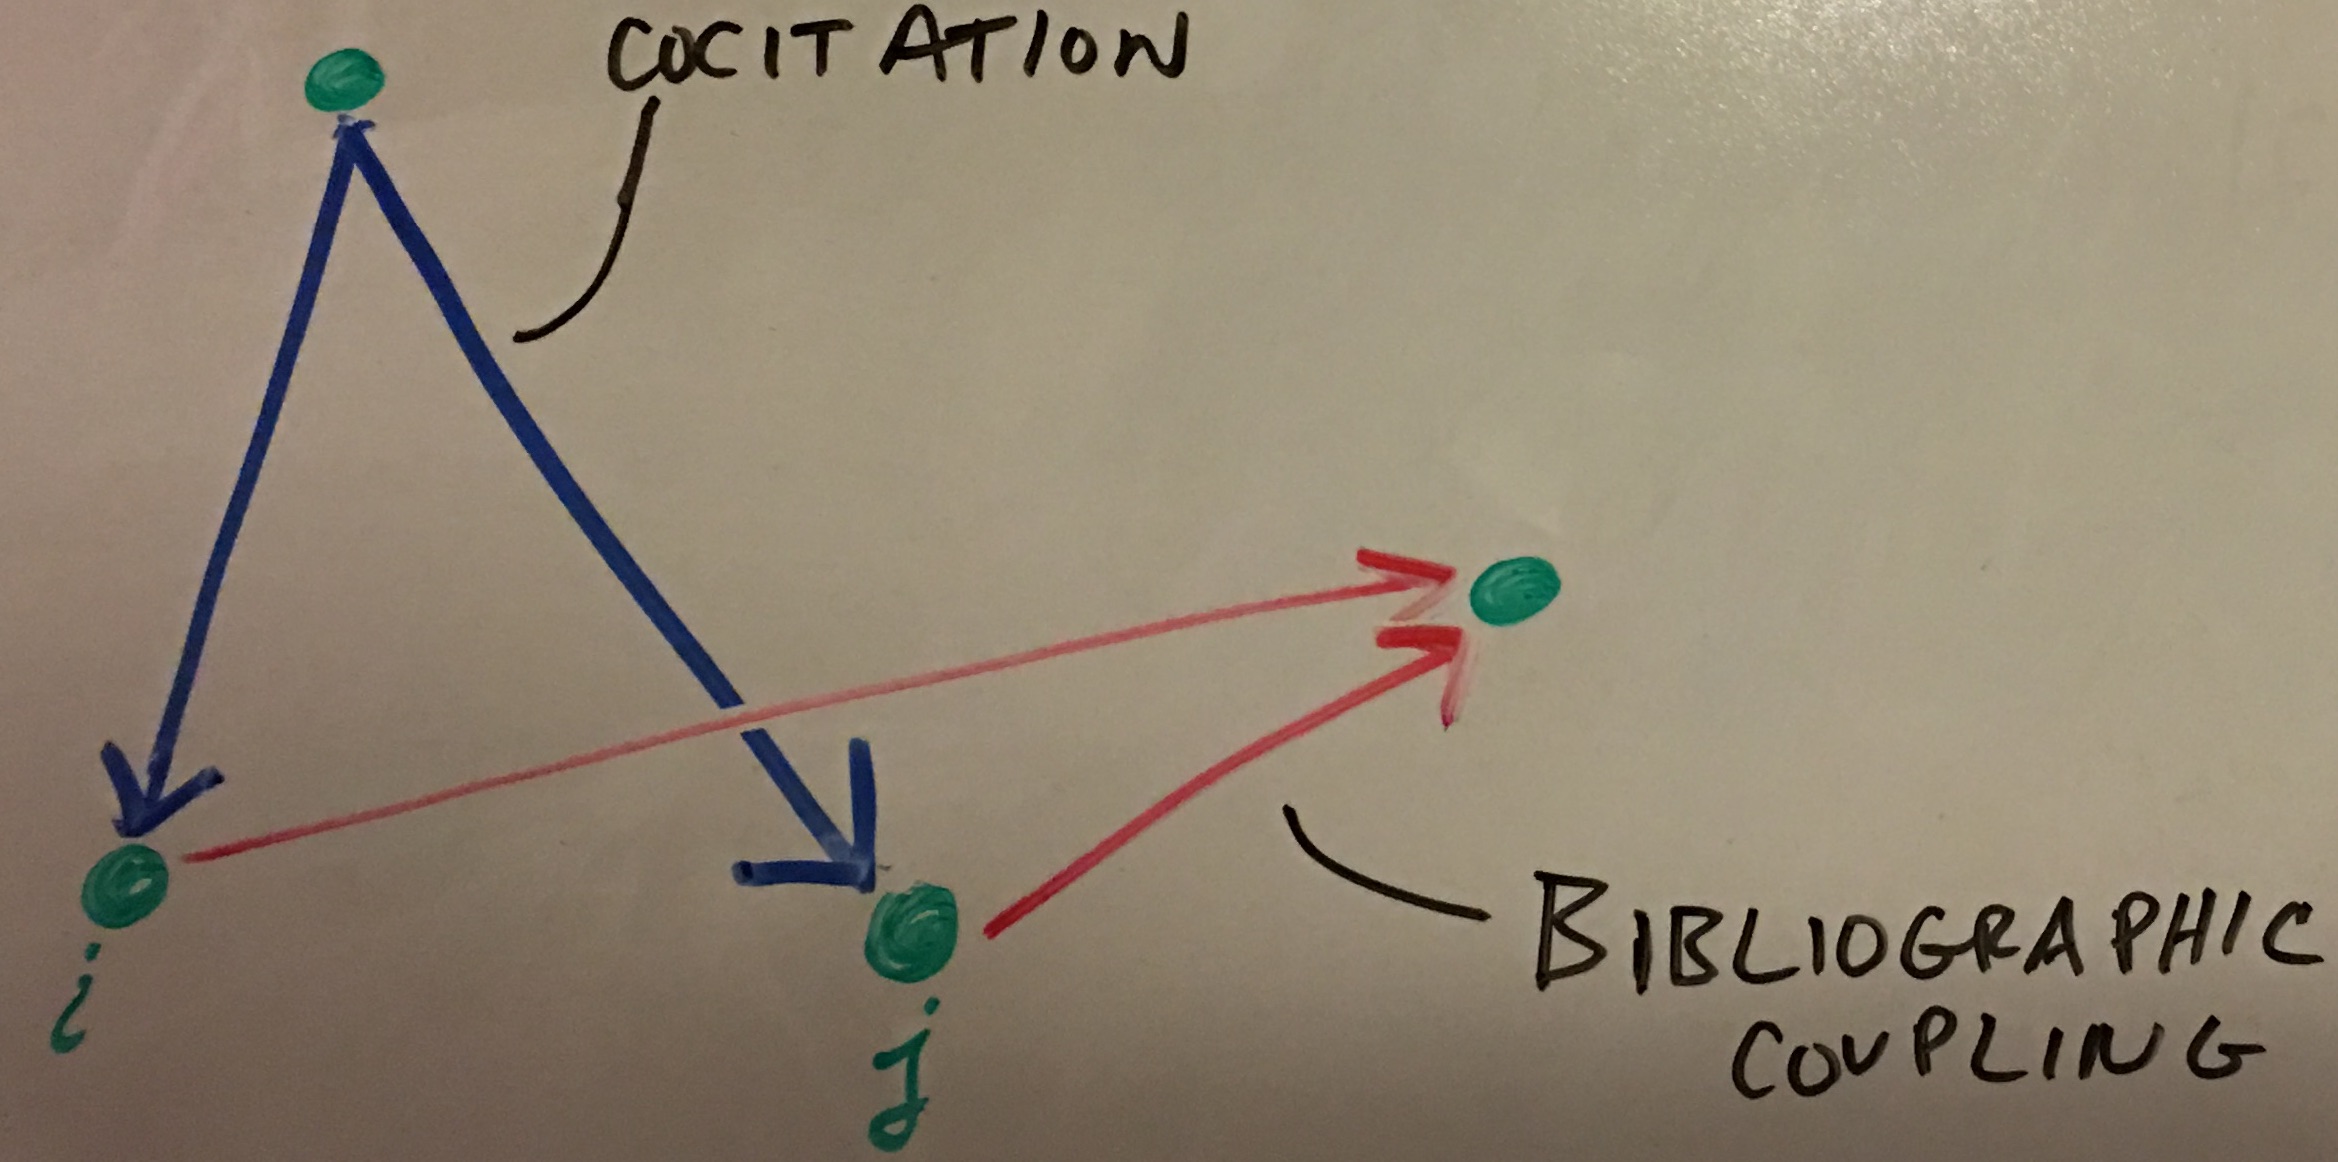 COCITATION
i
j
BIBLIOGRAPHIC
COUPLING